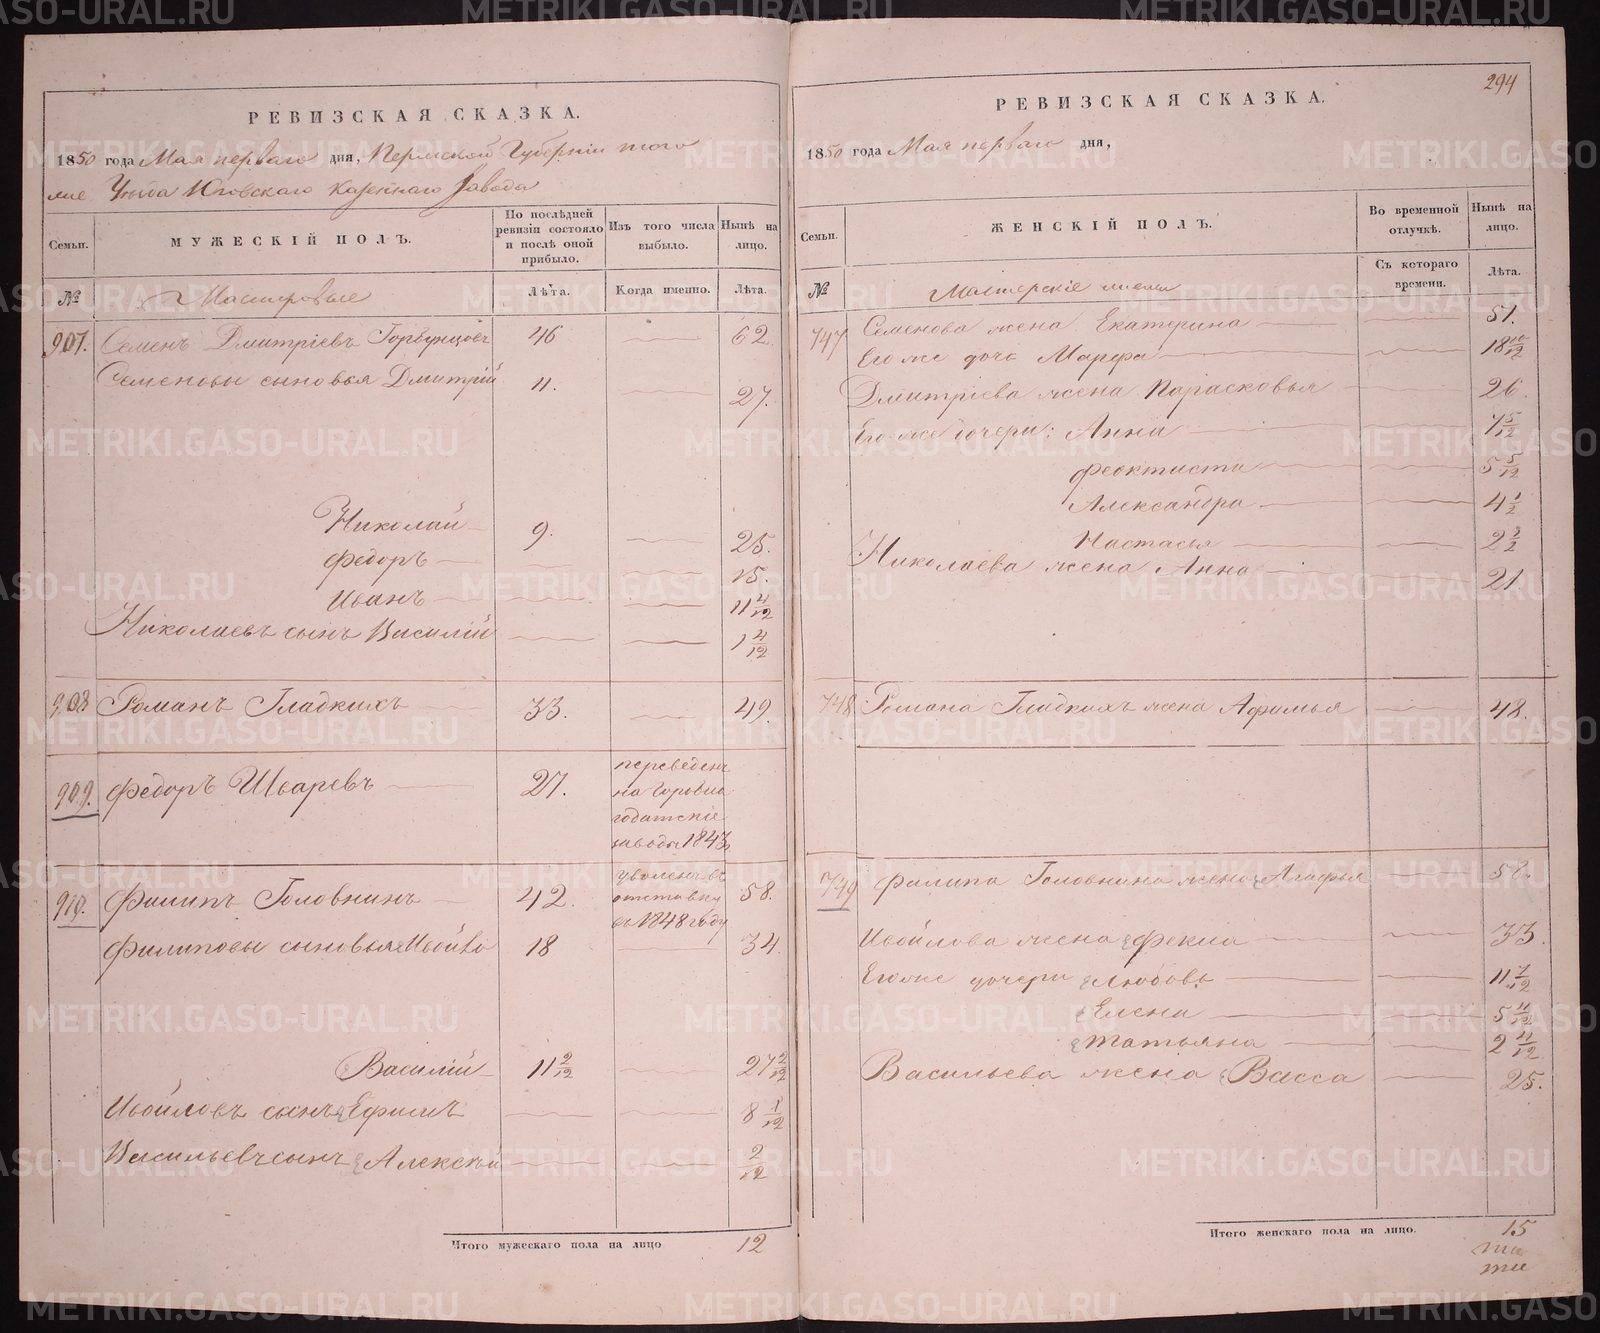 РЕВИЗСКАЯ СКАЗКА.
1850 года Мая перваго дня, Пермской Губернiи того
же Уезда Юговскаго Казеннаго Завода
Семьи.
МУЖЕСКIЙ ПОЛЪ.
По послѣдней ревизiи состояло и послѣ оной прибыло.
Изъ того числа выбыло.
Нынѣ на лицо.
№
Мастеровые
Лѣта.
Когда именно.
Лѣта.
907. Семенъ Дмитрiевъ Горбунцовъ 46 62
Семеновы сыновья Дмитрiй 11. 27.
Николай 9. 25.
Федоръ 15.
Иванъ 11 4/12
Николаевъ сынъ Василiй 1 4/12
908 Романъ Гладкихъ 33. 49.
909. Федоръ Шваревъ 27. переведенъ
на Горобла
годатскiе
заводы 1843
910. Филипъ Головнинъ 42. уволенъ въ отставку въ 1848 году 58.
Филиповы сыновья Ивойло 18 34
Василiй 11 2/12 27 2/12
Ивойловъ сынъ Ефимъ 8 1/12
Васильевъ сынъ Алексѣй 2/12
Итого мужескаго пола на лицо 12
294
РЕВИЗСКАЯ СКАЗКА.
1850 года Мая перваго дня,
Семьи.
ЖЕНСКIЙ ПОЛЪ.
Во временной отлучкѣ.
Нынѣ на лицо.
№
Мастерскiе жены
Съ котораго времени.
Лѣта.
747 Семенова жена Екатерина 51.
Его же дочь Марфа 18 10/12
Дмитрiева жена Парасковья 26.
Его же дочери: Анна 7 5/12
Феоктиста 5 5/12
Александра 4 1/2
Настасья 2 1/2
Николаева жена Анна 21
748 Романа Гладкихъ жена Афимья 48.
749 Филипа Головнина жена Агафья 58.
Ивойлова жена Фекла 33.
Его же дочери Любовь 11 7/12
Елена 5 11/12
Татьяна 2 11/12
Васильева жена Васса 25.
Итого женскаго пола на лицо. 15
METRIKI.GASO-URAL.RU